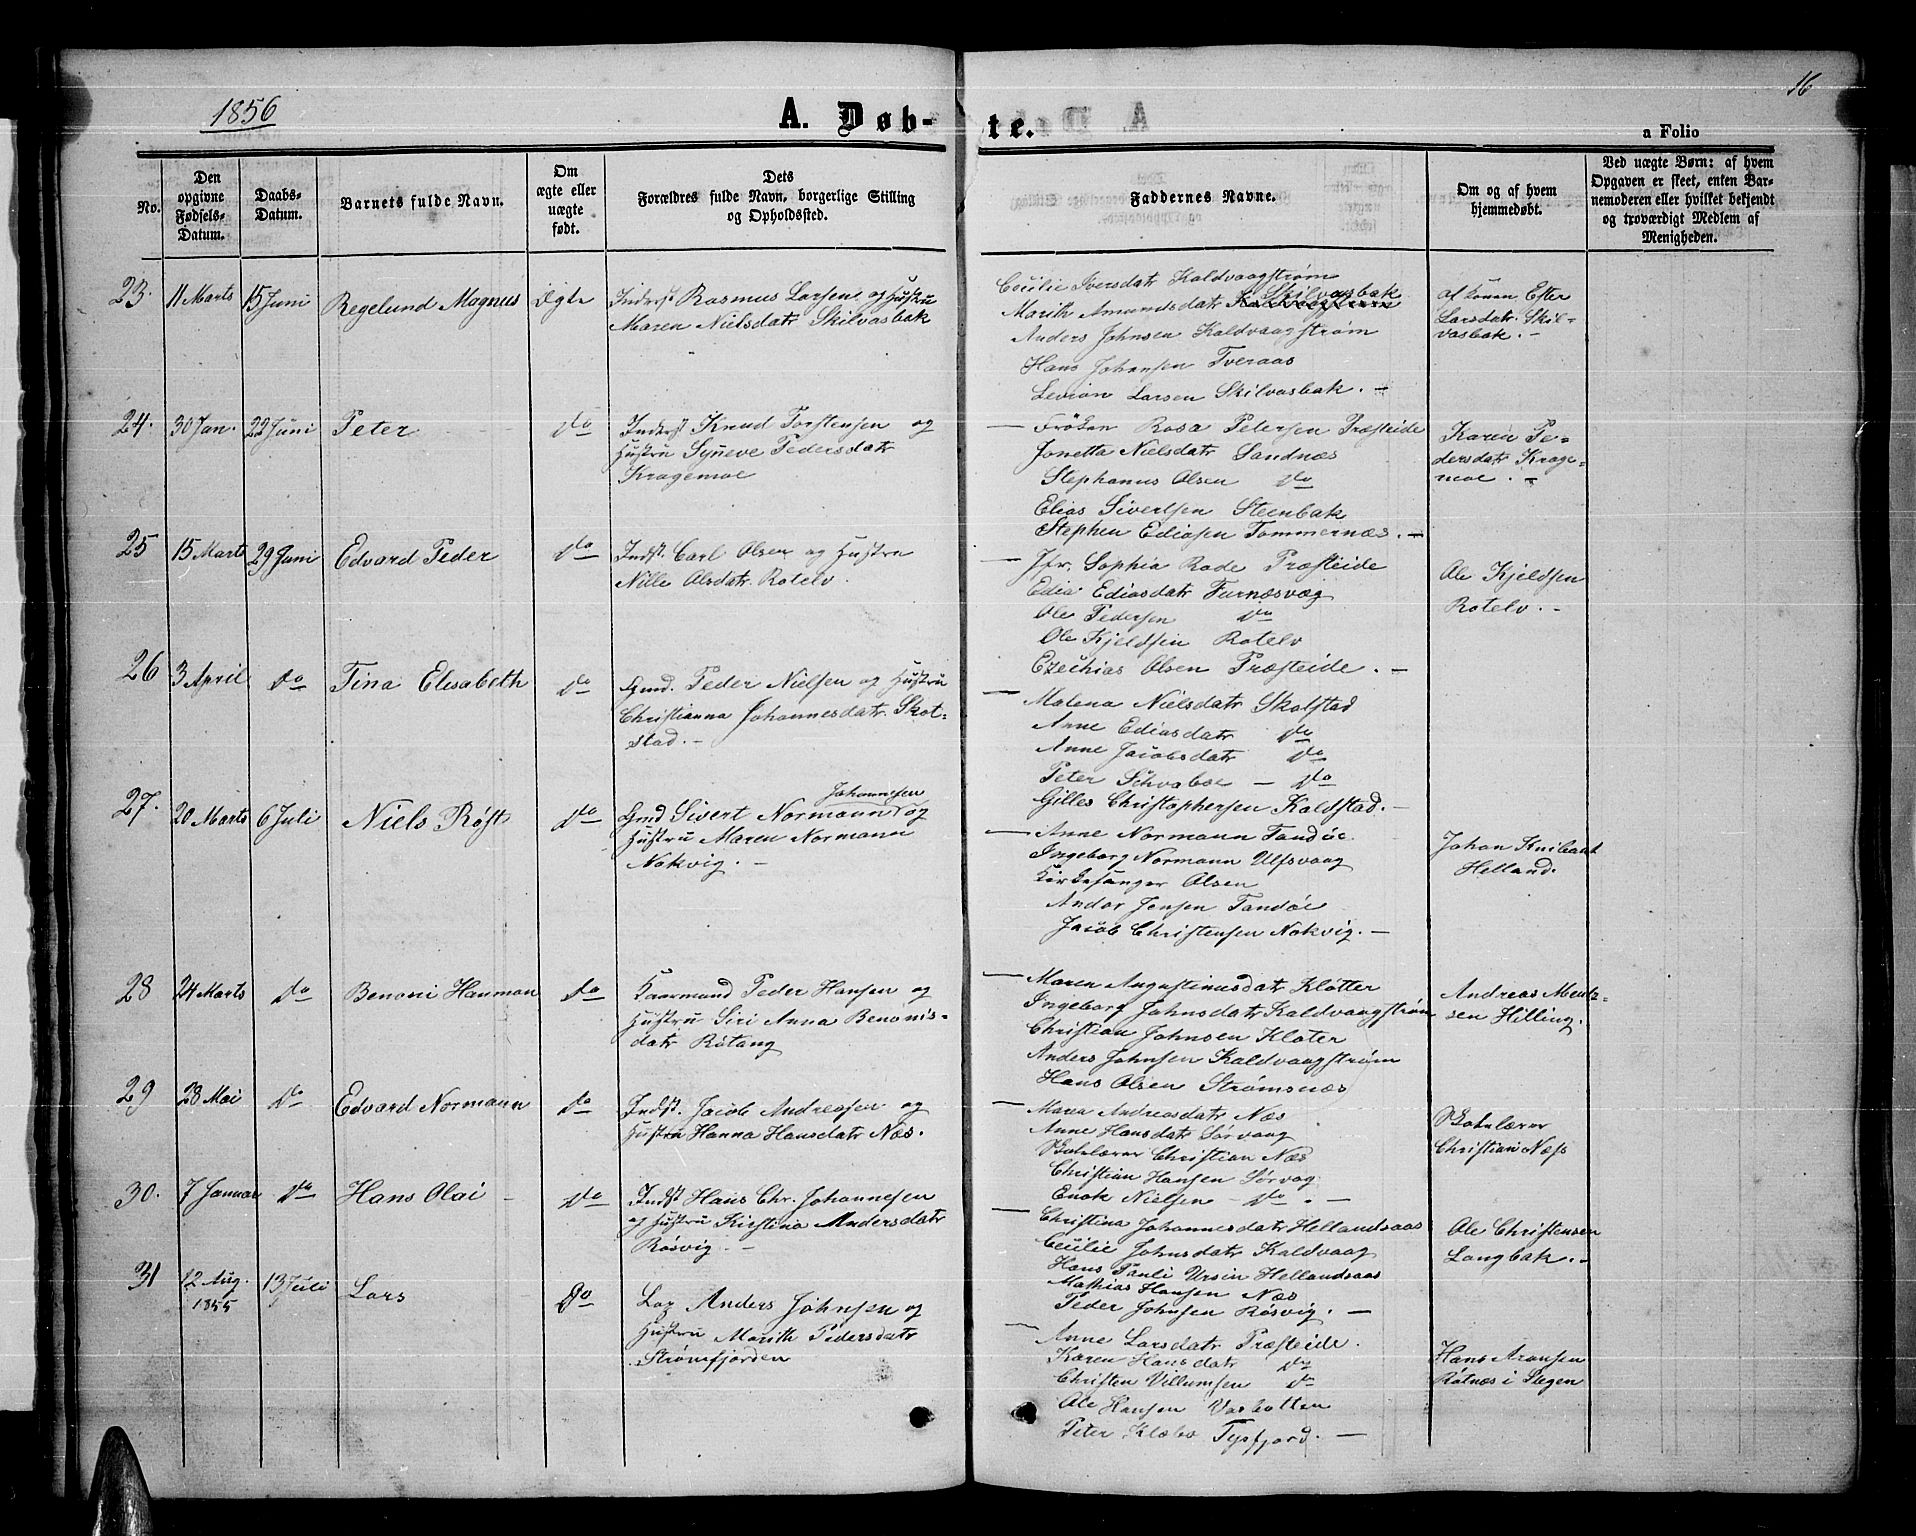 1856
A. Døb-
te.
16
a Folio
No.
Den opgivne Fødsels-Datum.
Daabs-Datum.
Barnets fulde Navn.
Om ægte eller uægte født.
Dets Forældres fulde Navn, borgerlige Stilling og Opholdssted.
Faddernes Navne.
Om og af hvem hjemmedøbt.
Ved uægte Børn: af hvem Opgaven er skeet, enten Barnemoderen eller hvilket bekjendt og troværdigt Medlem af Menigheden.
23. 11 Marts 15 Juni Regelund Magnus Ægte
Inderst Rasmus Larsen og Hustru
Maren Nielsdatr Skilvasbak
Cecilie Iversdatr Kaldvaagstrøm
Marith Amundsdatr Skilvasbak
Anders Johnsen Kaldvaagstrøm
Hans Johansen Tveraas
Larsen Skilvasbak. -
af Konen Ester
Larsdatr Skil-
vasbak. -
24. 30 Jan. 22 Juni Peter Do
Inderst Knud Torstensen og
Hustru Syneve Pedersdatr
Kragemoe
- Frøken Rosa Petersen Præsteide
Jonetta Nielsdatr Sandnæs
Stephanus Olsen Do
Elias Sivertsen Steenbak
Stephen Ediasen Tommernæs. -
Karen Pe-
dersdatr Krage-
moe. -
25 15 Marts 29 Juni Edvard Peder Do
Indst. Carl Olsen og Hustru
Nille Olsdatr Rotelv.
- Jfr. Sophia Rode Præsteide
Edia Ediasdatr Furnæsvæg
Ole Pedersen Do
Ole Kjeldsen Rotelv
Ezechias Olsen Præsteide. -
Ole Kjeldsen
Rotelv. -
26 3 April Do Tina Elisabeth Do
Gmd. Peder Nielsen og Hustru
Christianna Johannesdatr Skot-
stad. -
- Malena Nielsdatr Skotstad
Anne Ediasdatr Do
Anne Jacobsdatr Do
Peter Schvaboe - Do
Gilles Christophersen Kaldstad. -
27. 20 Marts 6 Juli Niels Røst Do
Johannesen
Gmd Sivert Normann og
Hustru Maren Normann
Nokvig. -
- Anne Normann Tandøe
Ingeborg Normann Ulfsvaag
Kirkesanger Olsen
Andor Jensen Tandøe
Jacob Christensen Nokvig. -
Johan
Helland.
28 24 Marts Do Benoni Hauman Do
Kaarmand Peder Hansen og
Hustru Siri Anna Benonis-
datr Rotang
- Maren Augustinusdatr Kløtter
Ingeborg Johnsdatr Kaldvaagstrøm
Christian Johnsen Kloter
Anders Johnsen Kaldvaagstrøm
Hans Olsen Strømsnæs
Andreas Mentz-
sen Hilling.
29 28 Mai Do Edvard Normann Do
Indst. Jacob Andreasen og
Hustru Hanna Hansdatr Næs.
- Maren Andreasdatr Næs
Anne Hansdatr Sørvaag
Skolelærer Christian Næs
Christian Hansen Sørvag
Enok Nielsen - Do. -
Skolelærer
Christian Næss
30. 7 Januar Do Hans Olai - Do
Indst Hans Chr. Johannesen
og Hustru Kirstina Andersdatr
Røsvig. -
- Christina Johannesdatr Hellandsaas
Cecilie Johnsdatr Kaldvaag
Hans Pauli Ursin Hellandsaas
Mathias Hansen Næs
Peder Johnsen Røsvig. -
Ole Christensen
Langbak. -
31 12 Aug. 1855 13 Juli Lars Do
Lap Anders Johnsen og
Hustru Marith Pedersdatr
Strømfjorden
- Anne Larsdatr Præsteide.
Karen Hansdatr Do
Christen Villumsen Do
Ole Hansen Vasbotten
Peter Klæbo Tysfjord. -
Hans Aronsen
Røtnæs i Stegen